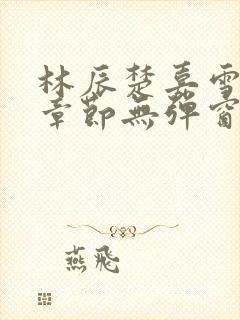 林辰楚嘉雪
章節無彈窗
燕飛